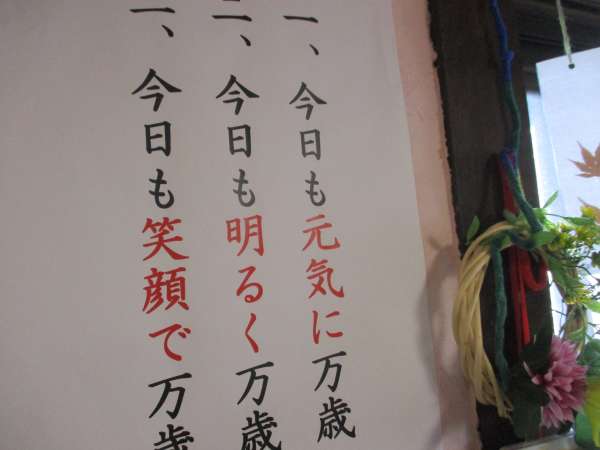 一、今日も元気に万歳
二、今日も明るく万歳
一、今日も笑顔で万歳